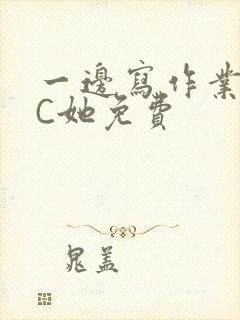 一邊寫作業
C她免費
晁蓋